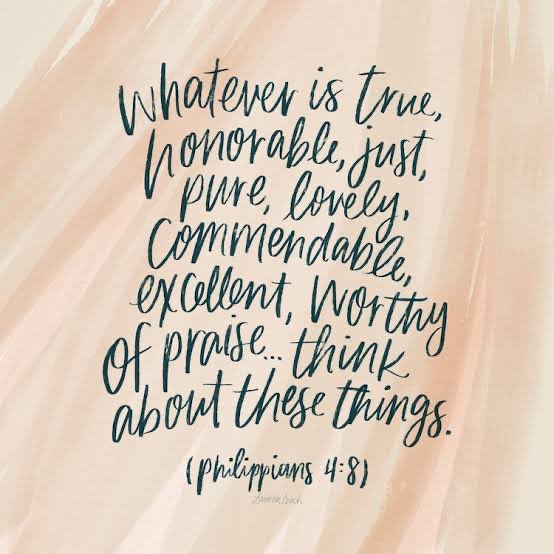 whatever is true,
honorable, just,
pure, lovely,
Commendable,
excellent, worthy
of praise... think
about these things.
(philippians 4:8)